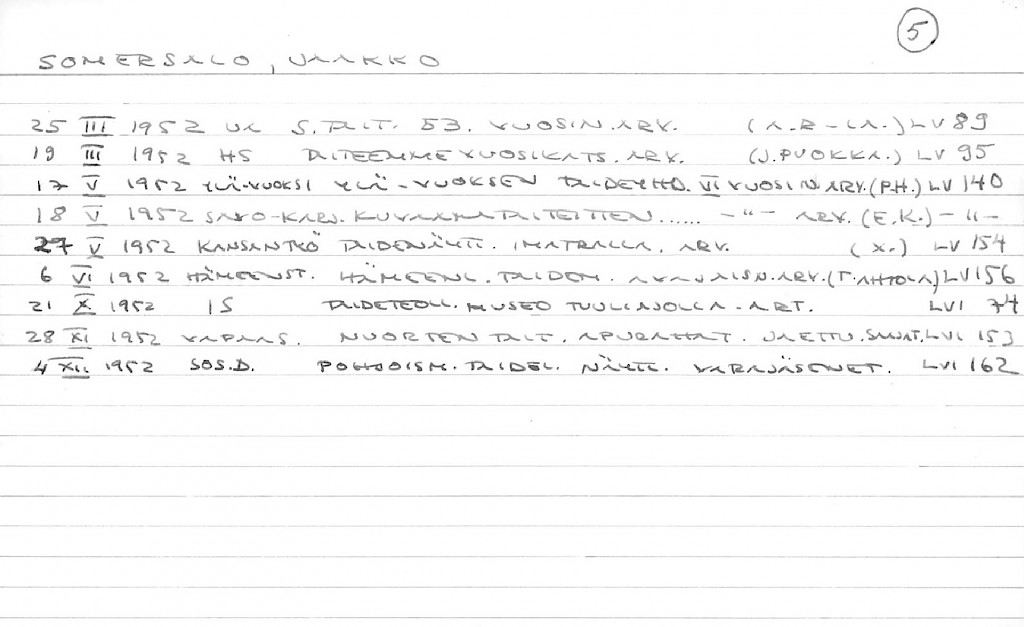 5
SOMERSALO, JAAKKO
25 III 1952 UA S. TAIT. 53. VUOSIN. ARV. (A.R-LA.) LV 89
19 III 1952 HS TAITEEMME VUOSIKATS. ARV. (J. PUOKKA.) LV 95
17 V 1952 YLÄ-VUOKSI YLÄ-VUOKSEN TAIDEYHD. VI VUOSIN. ARV. (P.H.) LV 140
18 V 1952 SAVO-KARJ. KUVAAMATAITEITTEN ...... -"- ARV. (E.K.) -"-
27 V 1952 KANSANTYÖ TAIDENÄYTT. IMATRALLA. ARV. (X.) LV 154
6 VI 1952 HÄMEENST. HÄMEENL. TAIDEM. AVAJAISN. ARV. (T. AHTOLA) LV 156
21 X 1952 IS TAIDETEOLL. MUSEO TUULIAJOLLA - ART. LVI 74
28 XI 1952 VAPAAS. NUORTEN TAIT. APURAHAT. JAETTU. SAAJAT. LVI 153
4 XII 1952 SOS.D. POHJOISM. TAIDEL. NÄYTT. VARAJÄSENET. LVI 162